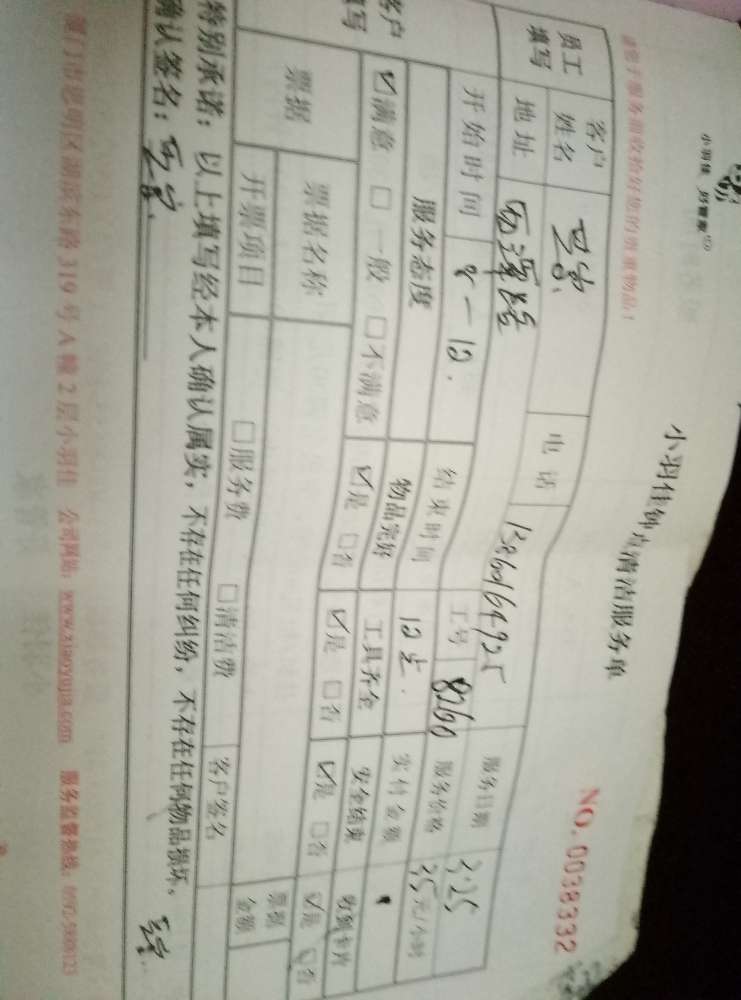 小羽佳 好管家
小羽佳钟点清洁服务单
NO.0038332
请您于服务前收拾好您的贵重物品！
员工填写
客户姓名
电话
服务日期 3.25
地址
工号 8260
服务价格 35元/小时
开始时间 8-10.
结束时间 10点.
实付金额
客户填写
服务态度 物品完好 工具齐全 安全结束 收到卡片
☑满意 □一般 □不满意 ☑是 □否 ☑是 □否 ☑是 □否 ☑是 □否
票据
票据名称
票据金额
开票项目 □服务费 □清洁费 客户签名
特别承诺：以上填写经本人确认属实，不存在任何纠纷，不存在任何物品损坏。
确认签名：
厦门市思明区湖滨东路319号A幢2层小羽佳 公司网站：www.xiaoyujia.com 服务监督热线：